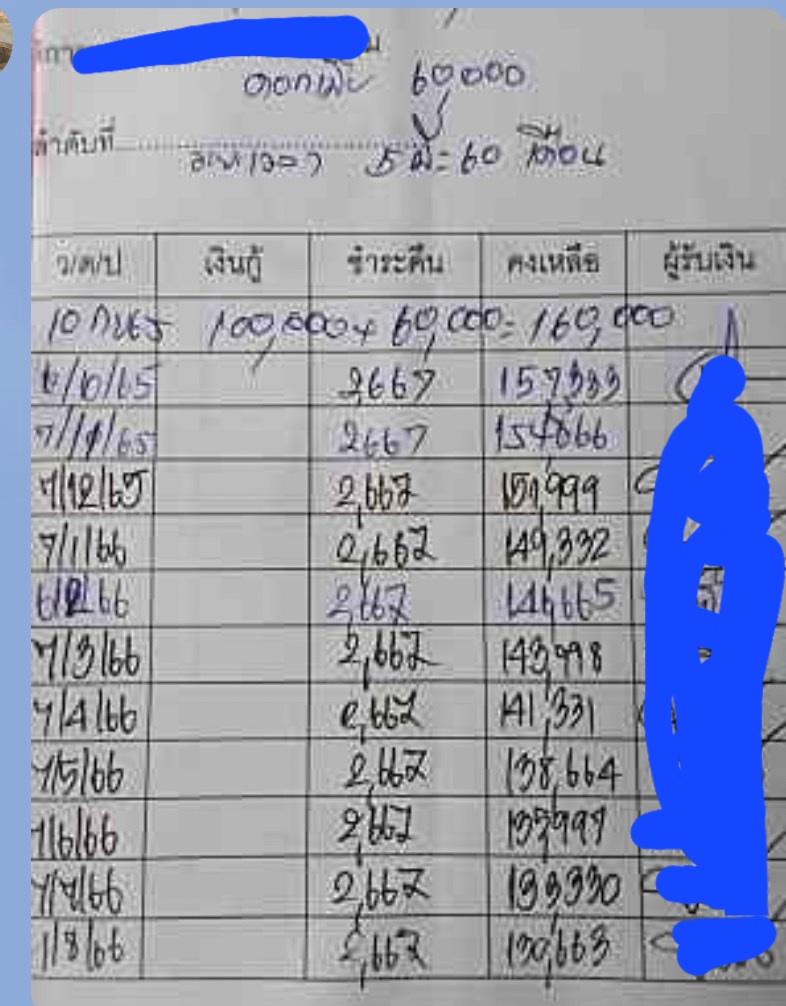 ดอกเบี้ย 60,000
ลำดับที่ ระยะเวลา 5 ปี = 60 เดือน
ว/ด/ป เงินกู้ ชำระคืน คงเหลือ ผู้รับเงิน
10 กย 65 100,000 + 60,000 = 160,000
/10/65 2667 157,333
7/11/65 2667 154,666
7/12/65 2,667 151,999
7/1/66 2,667 149,332
6/2/66 2,667 146,665
7/3/66 2,667 143,998
7/4/66 2,667 141,331
7/5/66 2,667 138,664
7/6/66 2,667 135,997
7/7/66 2,667 133,330
/8/66 2,667 130,663